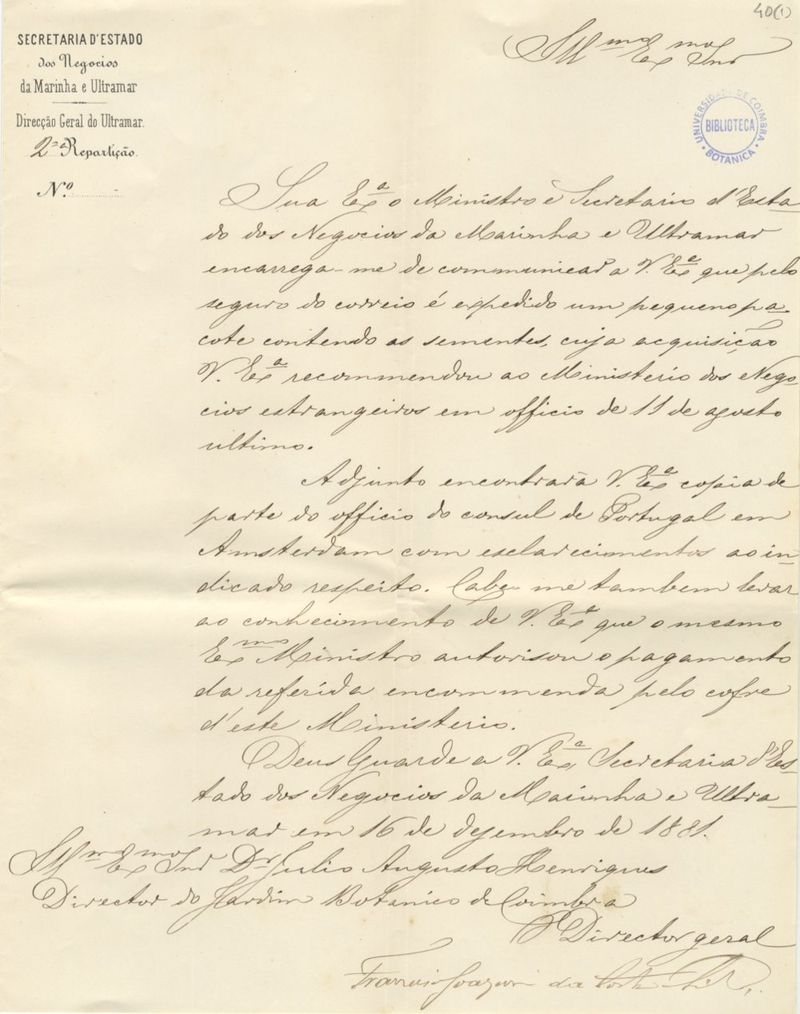 40(1)
SECRETARIA D'ESTADO
dos Negocios
da Marinha e Ultramar
Direcção Geral do Ultramar.
2ª Repartição.
Nº
Illmo Exmo Snr
UNIVERSIDADE DE COIMBRA
BIBLIOTECA
BOTANICA
Sua Exª o Ministro e Secretario d'Esta-
do dos Negocios da Marinha e Ultramar
encarrega-me de communicar a V. Exª que pelo
seguro do correio é expedido um pequeno pa-
cote contendo as sementes, cuja acquisição
V. Exª recommendou ao Ministerio dos Nego-
cios estrangeiros em officio de 11 de agosto
ultimo.
Adjunto encontrará V. Exª copia de
parte do officio do consul de Portugal em
Amsterdam com esclarecimentos ao in-
dicado respeito. Cabe me tambem levar
ao conhecimento de V. Exª que o mesmo
Exmo Ministro autorisou o pagamento
da referida encommenda pelo cofre
d'este Ministerio.
Deus Guarde a V. Exª Secretaria d'Es-
tado dos Negocios da Marinha e Ultra-
mar em 16 de dezembro de 1881.
Illmo Exmo Snr Dr Julio Augusto Henriques
Director do Jardim Botanico de Coimbra
O Director geral
Francisco Joaquim da Costa e Silva